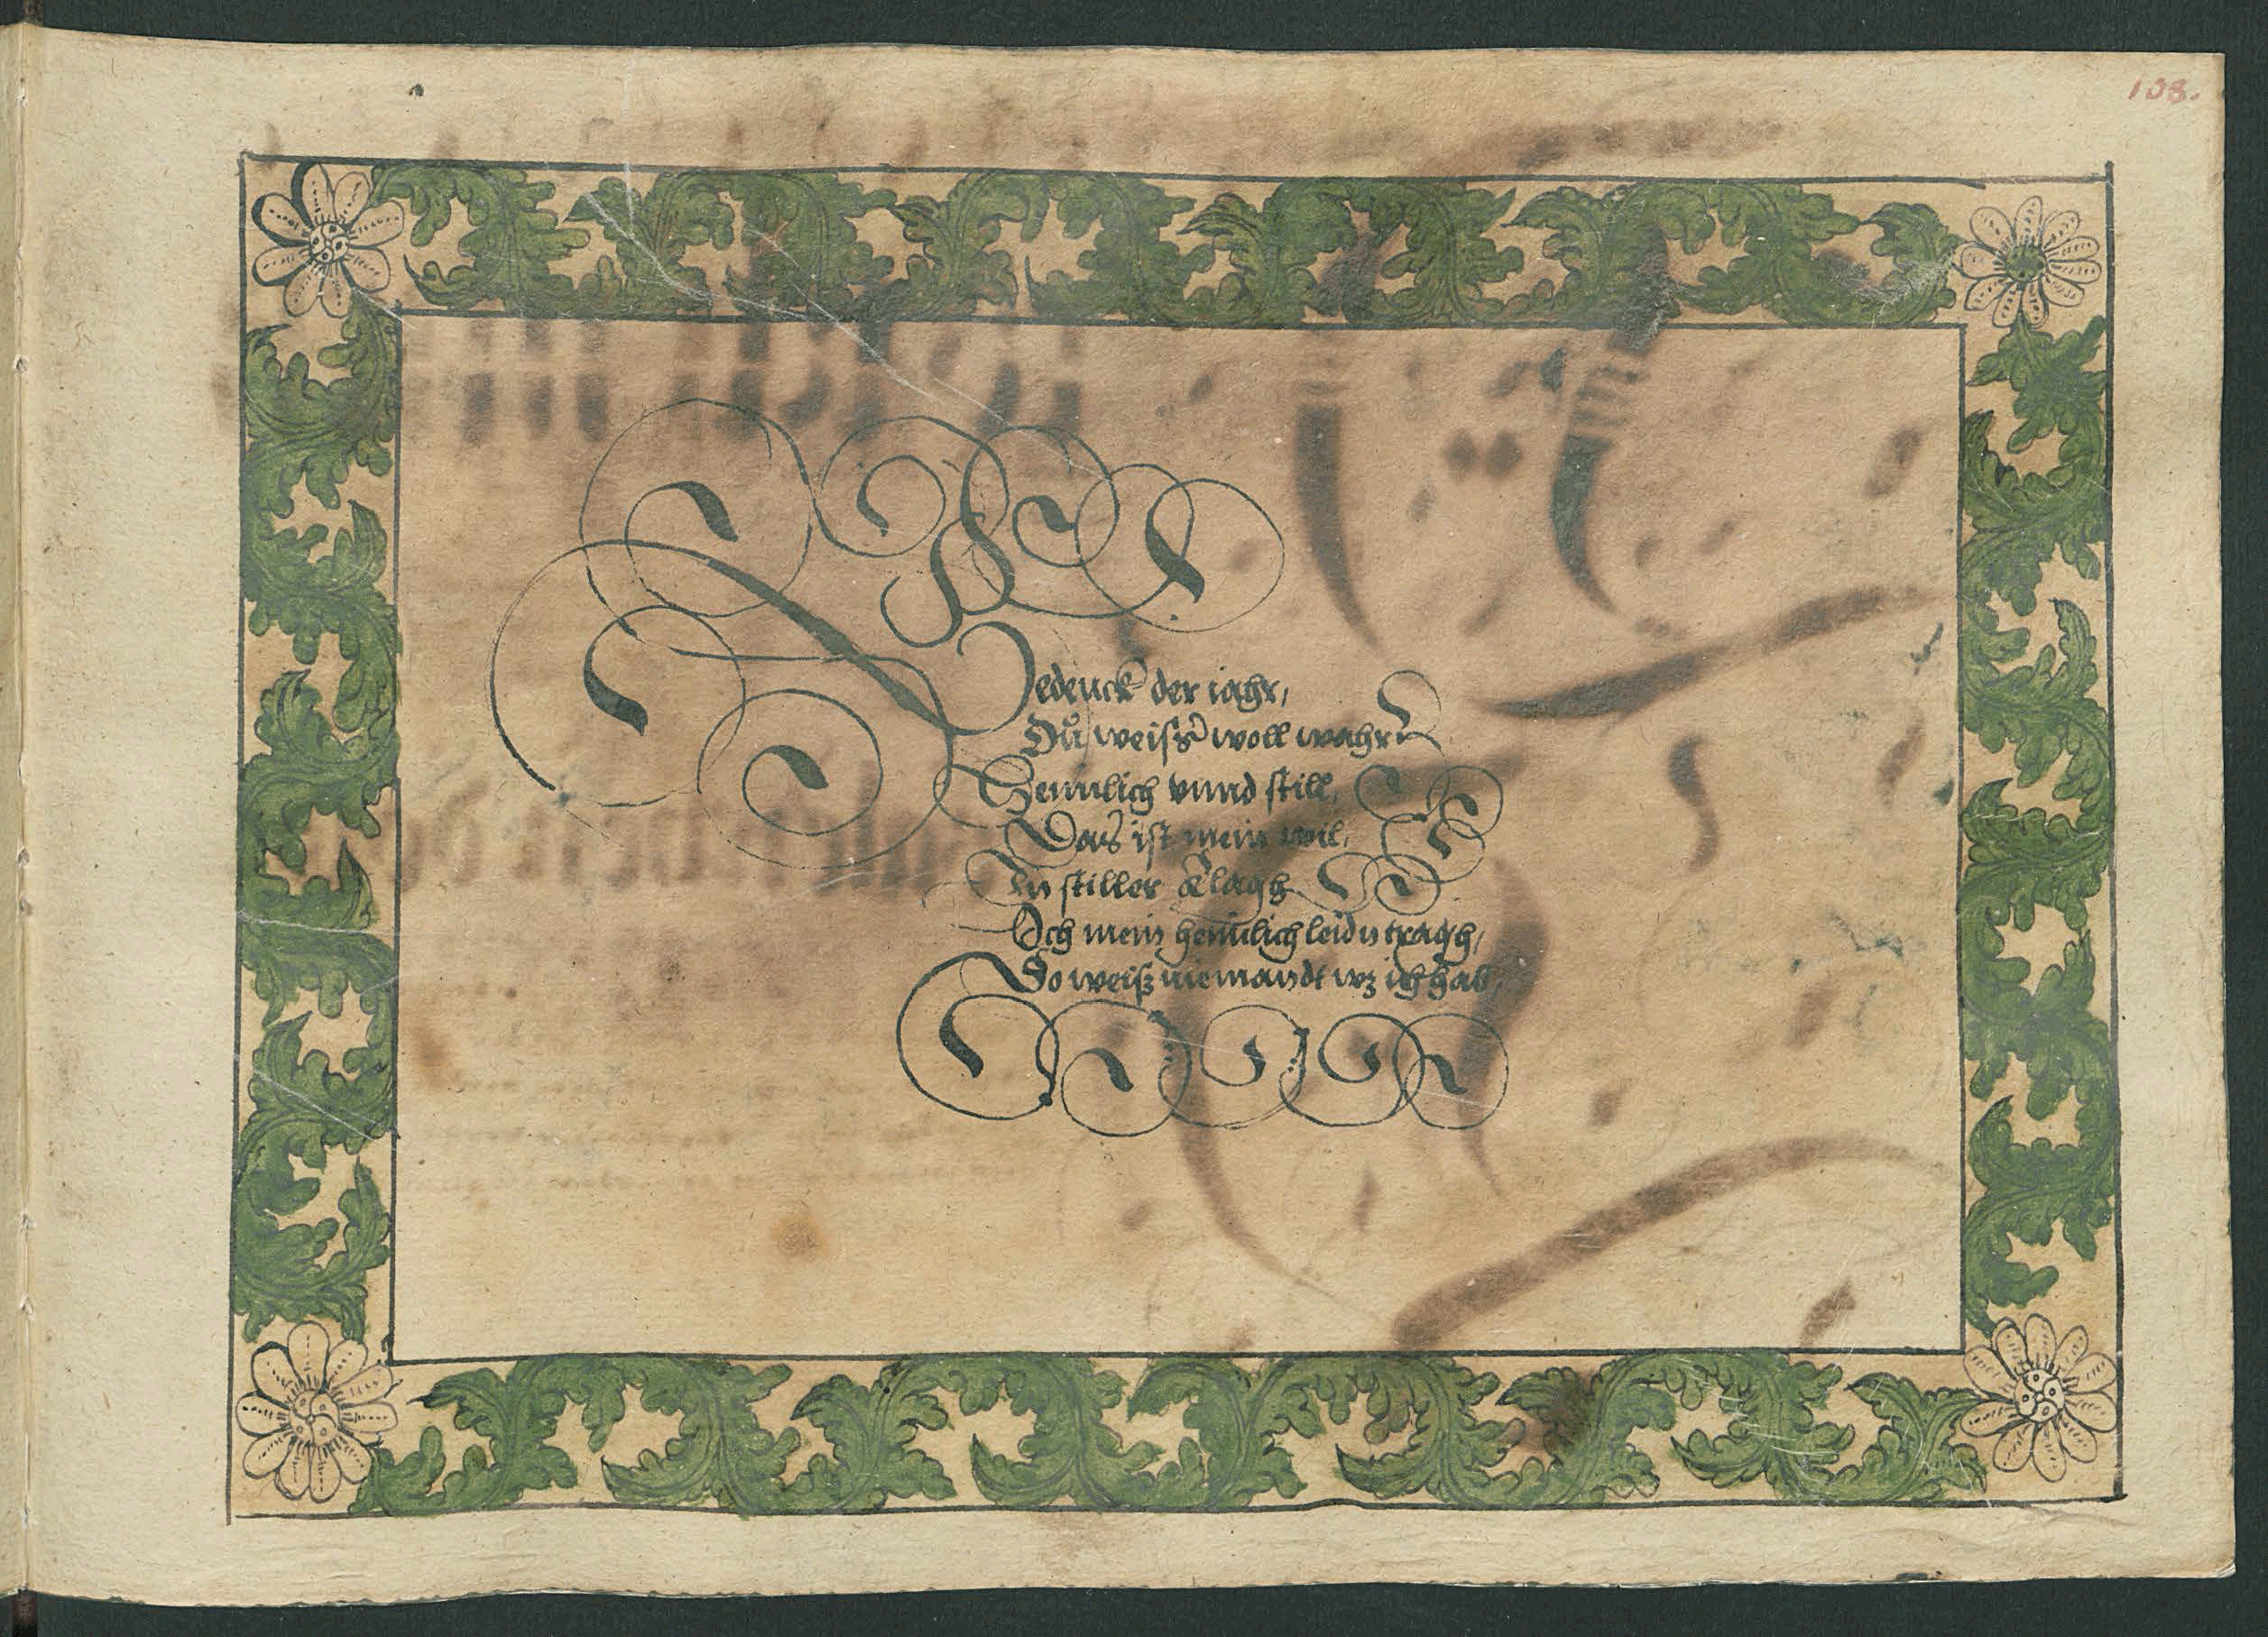 108.
Gedenck der iahr,
Dů weist woll wahr
Hemlich vnnd still,
Das ist mein wil,
In stiller klagh
Ich mein hemlich leidn tragh,
So weiß niemandt wz ich hab,